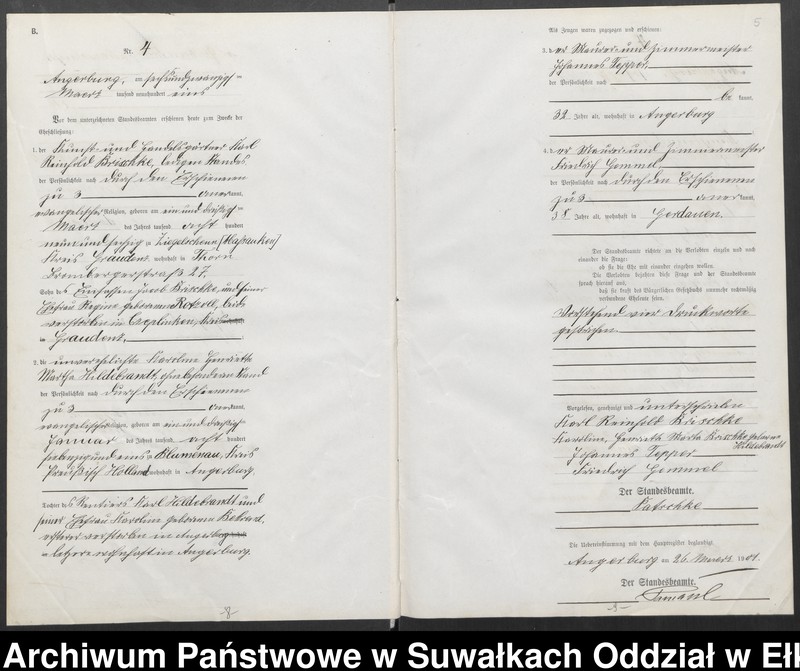 B.
Nr. 4
Angerburg, am sechsundzwanzigsten
Maerz tausend neunhundert eins
Vor dem unterzeichneten Standesbeamten erschienen heute zum Zwecke der
Eheschließung:
1. der Kunst- und Handelsgärtner Karl
Reinhold Brischke, ledigen Standes
der Persönlichkeit nach durch den Erschienenen
zu 3 anerkannt,
evangelischer Religion, geboren am einunddreißigsten
Maerz des Jahres tausend acht hundert
neunundsechzig in Ziegelscheune
Kreis Graudenz, wohnhaft in Thorn
Brombergerstraße 27,
Sohn des Einsassen Jacob Brischke, und seiner
Ehefrau Regine geborenen, beide
verstorben in, Kreis
in Graudenz,
2. die unverehelichte Karoline Henriette
Martha Hildebrandt, ohne besonderen Stand
der Persönlichkeit nach durch den Erschienenen
zu 3 anerkannt,
evangelischer Religion, geboren am einunddreißigsten
Januar des Jahres tausend acht hundert
siebenzigundeins in Blumenau, Kreis
Preußisch Holland wohnhaft in Angerburg,
Tochter des Rentiers Karl Hildebrandt und
seiner Ehefrau Karoline geborenen,
ersterer verstorben in Angerburg
letztere wohnhaft in Angerburg.
-8-
5
Als Zeugen waren zugezogen und erschienen:
3. der Maurer- und Zimmermeister
Johannes Tepper,
der Persönlichkeit nach
be kannt,
32 Jahre alt, wohnhaft in Angerburg
4. der Maurer- und Zimmermeister
Friedrich Gemmel
der Persönlichkeit nach durch den Erschienenen
zu 3 anerkannt,
38 Jahre alt, wohnhaft in Gerdauen.
Der Standesbeamte richtete an die Verlobten einzeln und nach
einander die Frage:
ob sie die Ehe mit einander eingehen wollen.
Die Verlobten bejahten diese Frage und der Standesbeamte
sprach hierauf aus,
daß sie kraft des Bürgerlichen Gesetzbuchs nunmehr rechtmäßig
verbundene Eheleute seien.
Vorstehend vier Druckworte
gestrichen.
Vorgelesen, genehmigt und unterschrieben
Karl Reinhold Brischke
Karoline, Henriette Martha Brischke geborene
Hildebrandt
Johannes Tepper
Friedrich Gemmel
Der Standesbeamte.
Die Uebereinstimmung mit dem Hauptregister beglaubigt.
Angerburg am 26. Maerz 1901.
Der Standesbeamte.
Archiwum Państwowe w Suwałkach Oddział w Eł